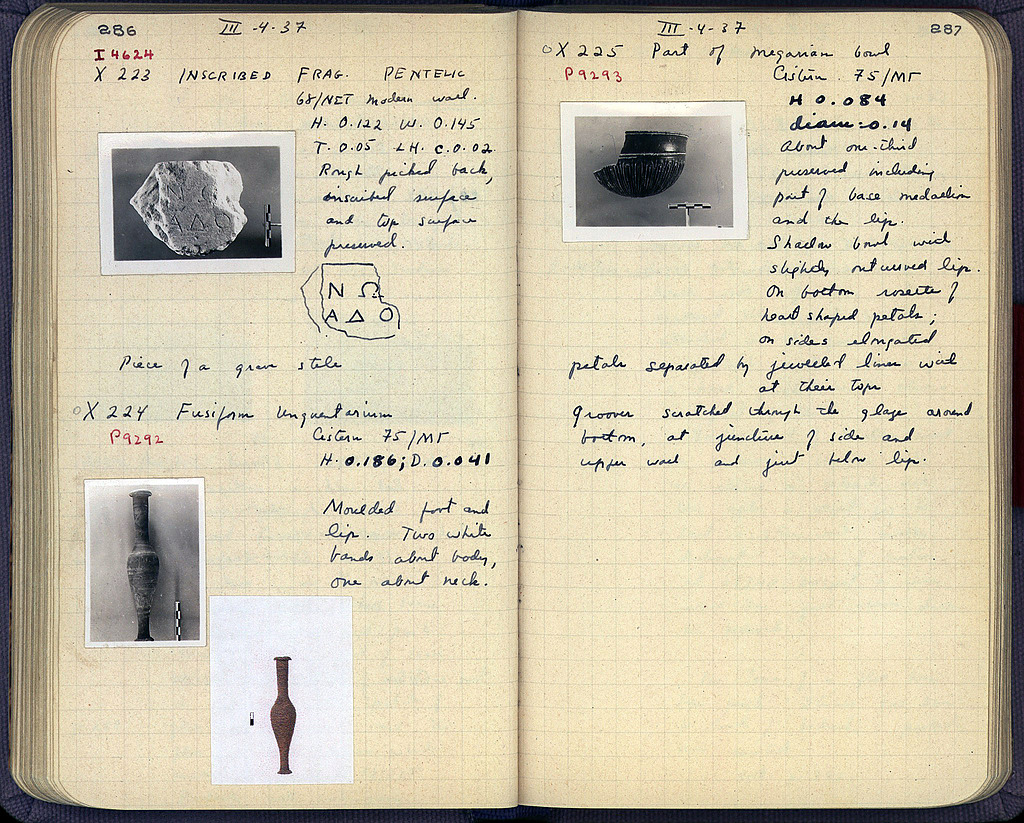 286
III-4-37
I 4624
X 223 INSCRIBED FRAG. PENTELIC
68/NET modern wall.
H. 0.122 W. 0.145
T. 0.05 LH. C. 0.02
Rough picked back,
inscribed surface
and top surface
preserved.
Ν Ω
Α Δ Ο
Piece of a grave stele
X 224 Fusiform Unguentarium
P9292
Cistern 75/ΜΓ
H. 0.186; D. 0.041
Moulded foot and
lip. Two white
bands about body,
one about neck.
III-4-37
287
X 225 Part of Megarian bowl
P9293
Cistern. 75/ΜΓ
H 0.084
diam: 0.14
About one-third
preserved including
part of base medallion
and the lip.
Shallow bowl with
slightly outcurved lip.
On bottom rosette of
heart shaped petals;
on sides elongated
petals separated by jeweled lines with
at their tops
Grooves scratched through the glaze around
bottom, at juncture of side and
upper wall and just below lip.